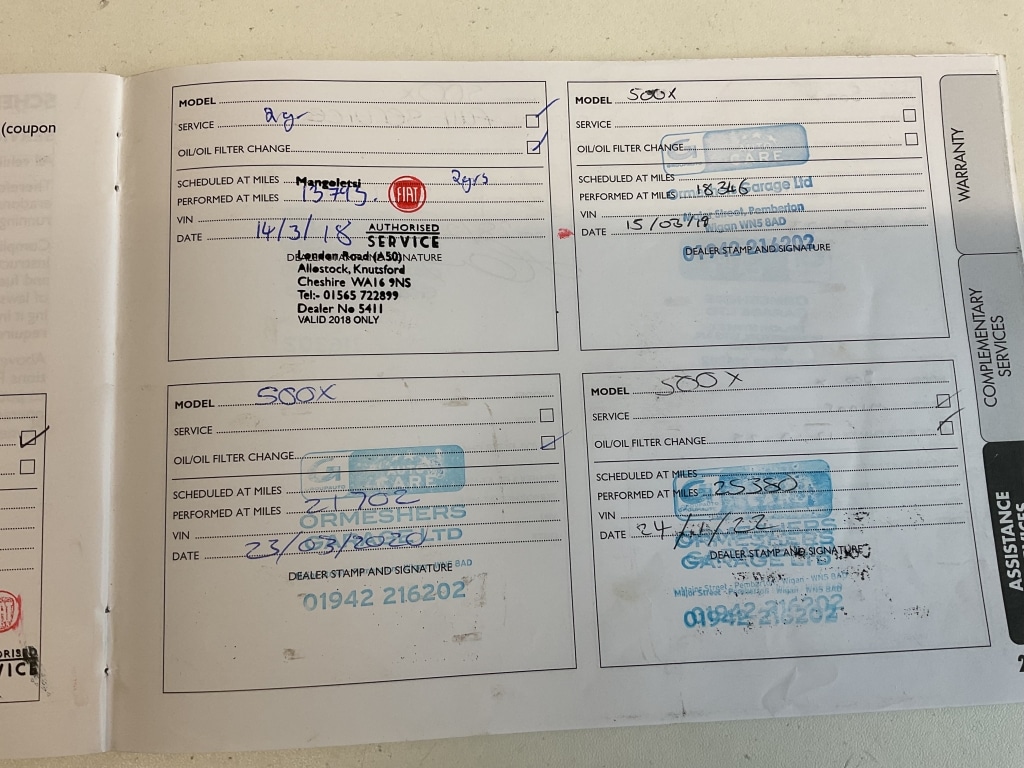 (coupon
MODEL
SERVICE 2yr
OIL/OIL FILTER CHANGE
SCHEDULED AT MILES 2yrs
PERFORMED AT MILES 13793.
FIAT
VIN
DATE 14/3/18
AUTHORISED
SERVICE
DEALER STAMP AND SIGNATURE
London Road (A50)
Allostock, Knutsford
Cheshire WA16 9NS
Tel:- 01565 722899
Dealer No 5411
VALID 2018 ONLY
MODEL 500X
SERVICE
OIL/OIL FILTER CHANGE
CARE
SCHEDULED AT MILES
PERFORMED AT MILES 18346
Garage Ltd
VIN
Major Street, Pemberton
Wigan WN5 8AD
DATE 15/03/19
01942 216202
DEALER STAMP AND SIGNATURE
MODEL 500X
SERVICE
OIL/OIL FILTER CHANGE
CARE
SCHEDULED AT MILES
PERFORMED AT MILES 21702
ORMESHERS
VIN
LTD
DATE 23/03/2020
DEALER STAMP AND SIGNATURE
8AD
01942 216202
MODEL 500X
SERVICE
OIL/OIL FILTER CHANGE
SCHEDULED AT MILES
PERFORMED AT MILES 25380
VIN
DATE 24/11/22
ORMESHERS
DEALER STAMP AND SIGNATURE
GARAGE LTD
Major Street - Pemberton - Wigan - WN5 8AD
01942 216202
WARRANTY
COMPLEMENTARY
SERVICES
ASSISTANCE